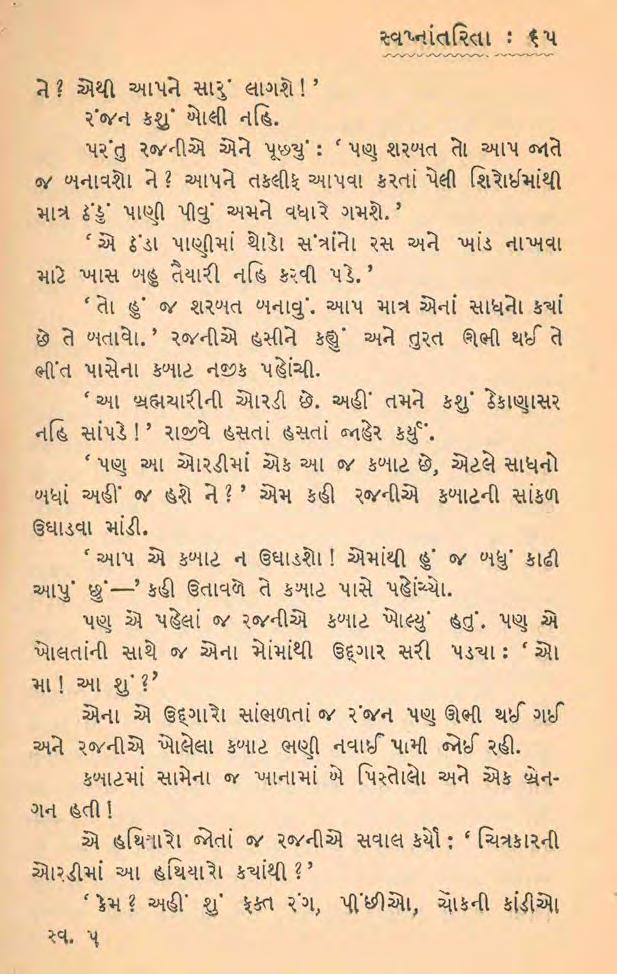 સ્વપ્નાંતરિતા : ૬૫
ને? એથી આપને સારું લાગશે!’
રંજન કશું બોલી નહિ.
પરંતુ રજનીએ એને પૂછ્યું : ‘પણ શરબત તો આપ જાતે
જ બનાવશો ને? આપને તકલીફ આપવા કરતાં પેલી શિરોઈમાંથી
માત્ર ઠંડું પાણી પીવું અમને વધારે ગમશે.’
‘એ ઠંડા પાણીમાં થોડો સંત્રાંનો રસ અને ખાંડ નાખવા
માટે ખાસ બહુ તૈયારી નહિ કરવી પડે.’
‘તો હું જ શરબત બનાવું. આપ માત્ર એનાં સાધનો કયાં
છે તે બતાવો.’ રજનીએ હસીને કહ્યું અને તુરત ઊભી થઈ તે
ભીંત પાસેના કબાટ નજીક પહોંચી.
‘આ બ્રહ્મચારીની ઓરડી છે. અહીં તમને કશું ઠેકાણાસર
નહિ સાંપડે!’ રાજીવે હસતાં હસતાં જાહેર કર્યું.
‘પણ આ ઓરડીમાં એક આ જ કબાટ છે, એટલે સાધનો
બધાં અહીં જ હશે ને?’ એમ કહી રજનીએ કબાટની સાંકળ
ઉઘાડવા માંડી.
‘આપ એ કબાટ ન ઉઘાડશો! એમાંથી હું જ બધું કાઢી
આપું છું—’ કહી ઉતાવળે તે કબાટ પાસે પહોંચ્યો.
પણ એ પહેલાં જ રજનીએ કબાટ ખોલ્યું હતું. પણ એ
ખોલતાંની સાથે જ એના મોંમાંથી ઉદ્ગાર સરી પડયા : ‘ઓ
મા! આ શું?’
એના એ ઉદ્ગારો સાંભળતાં જ રંજન પણ ઊભી થઈ ગઈ
અને રજનીએ ખોલેલા કબાટ ભણી નવાઈ પામી જોઈ રહી.
કબાટમાં સામેના જ ખાનામાં બે પિસ્તોલો અને એક બ્રેન-
ગન હતી!
એ હથિયારો જોતાં જ રજનીએ સવાલ કર્યો : ‘ચિત્રકારની
ઓરડીમાં આ હથિયારો કયાંથી?’
‘કેમ? અહીં શું ફક્ત રંગ, પીંછીઓ, ચૉકની કાંડીઓ
સ્વ. ૫